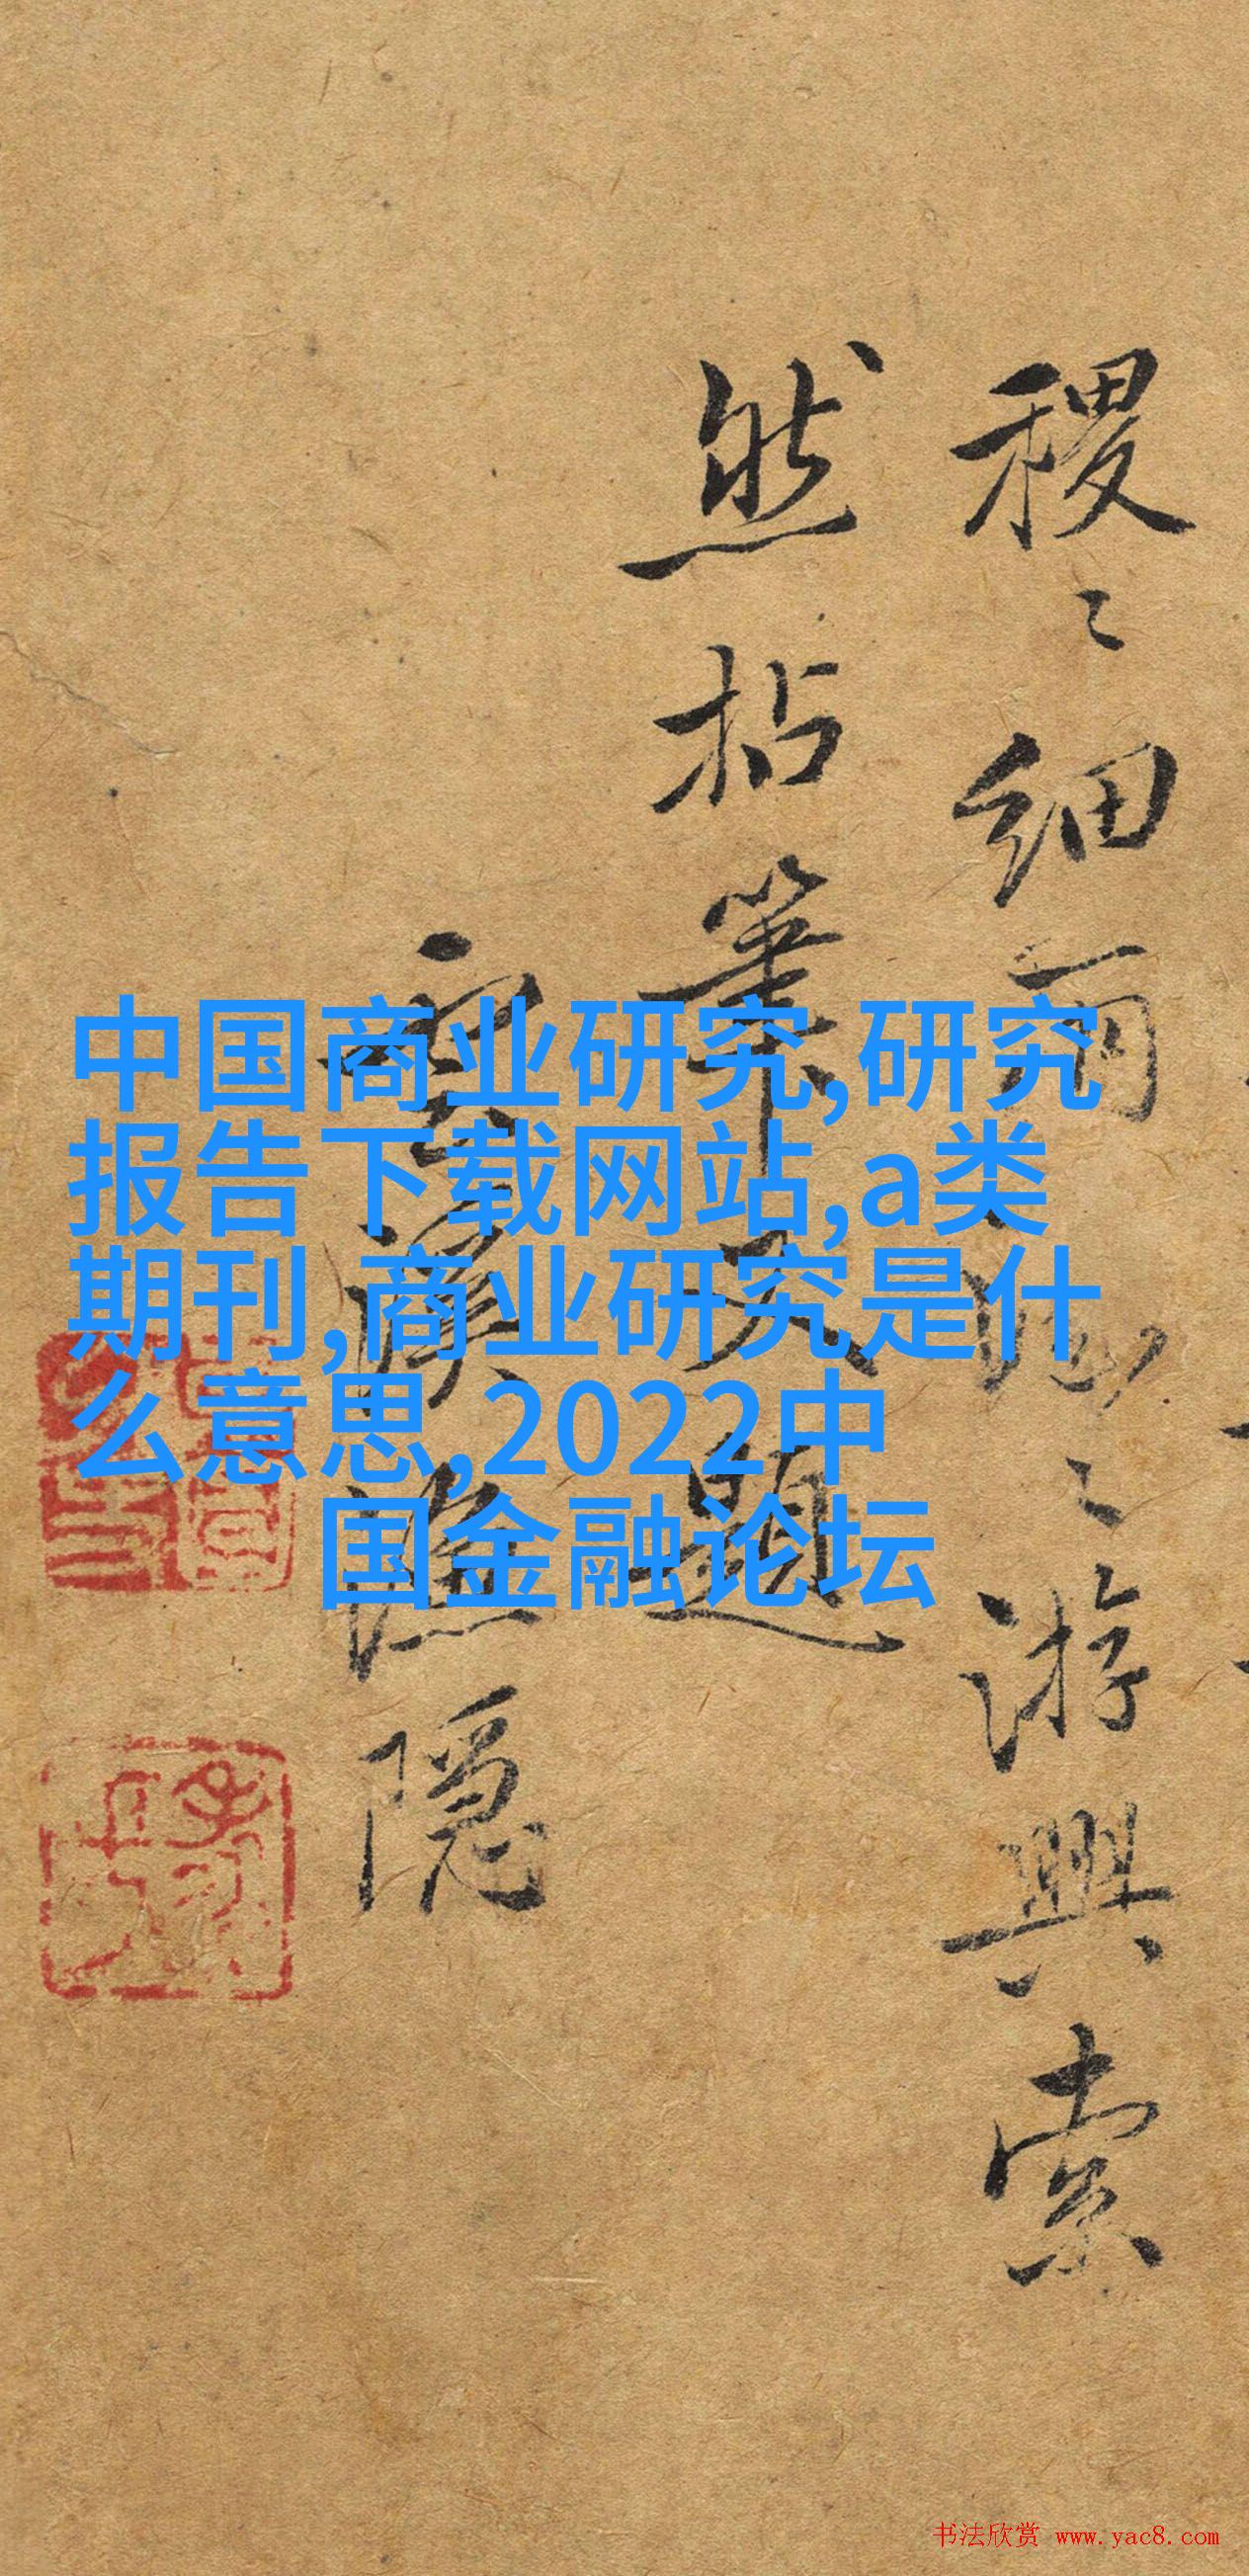 中国商业研究,研究
报告下载网站,a类
期刊,商业研究是什
么意思,2022中
国金融论坛
稷〻细雨
〻游興索
然拈筆
題
隐
书法欣赏 www.yac8.com